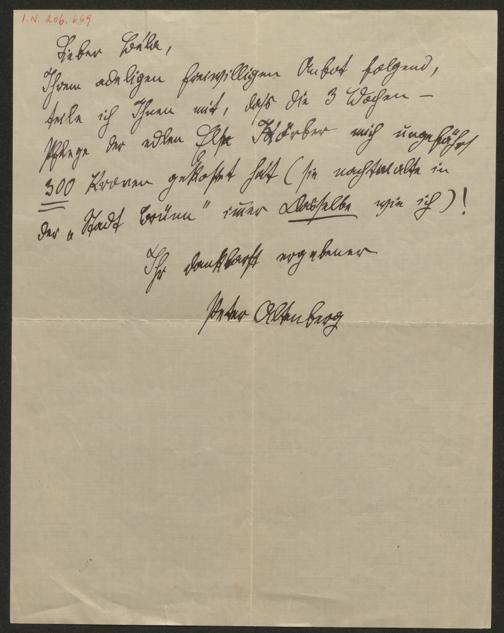 I.N. 206.669
Lieber Béla,
Ihrem adeligen freiwilligen Anbot folgend,
teile ich Ihnen mit, dass die 3 Wochen –
Pflege der edlen Else mich ungefähr
300 Kronen gekostet hat (sie nachtmalte in
der „Stadt Brünn" immer dasselbe wie ich)!
Ihr dankbarst ergebener
Peter Altenberg